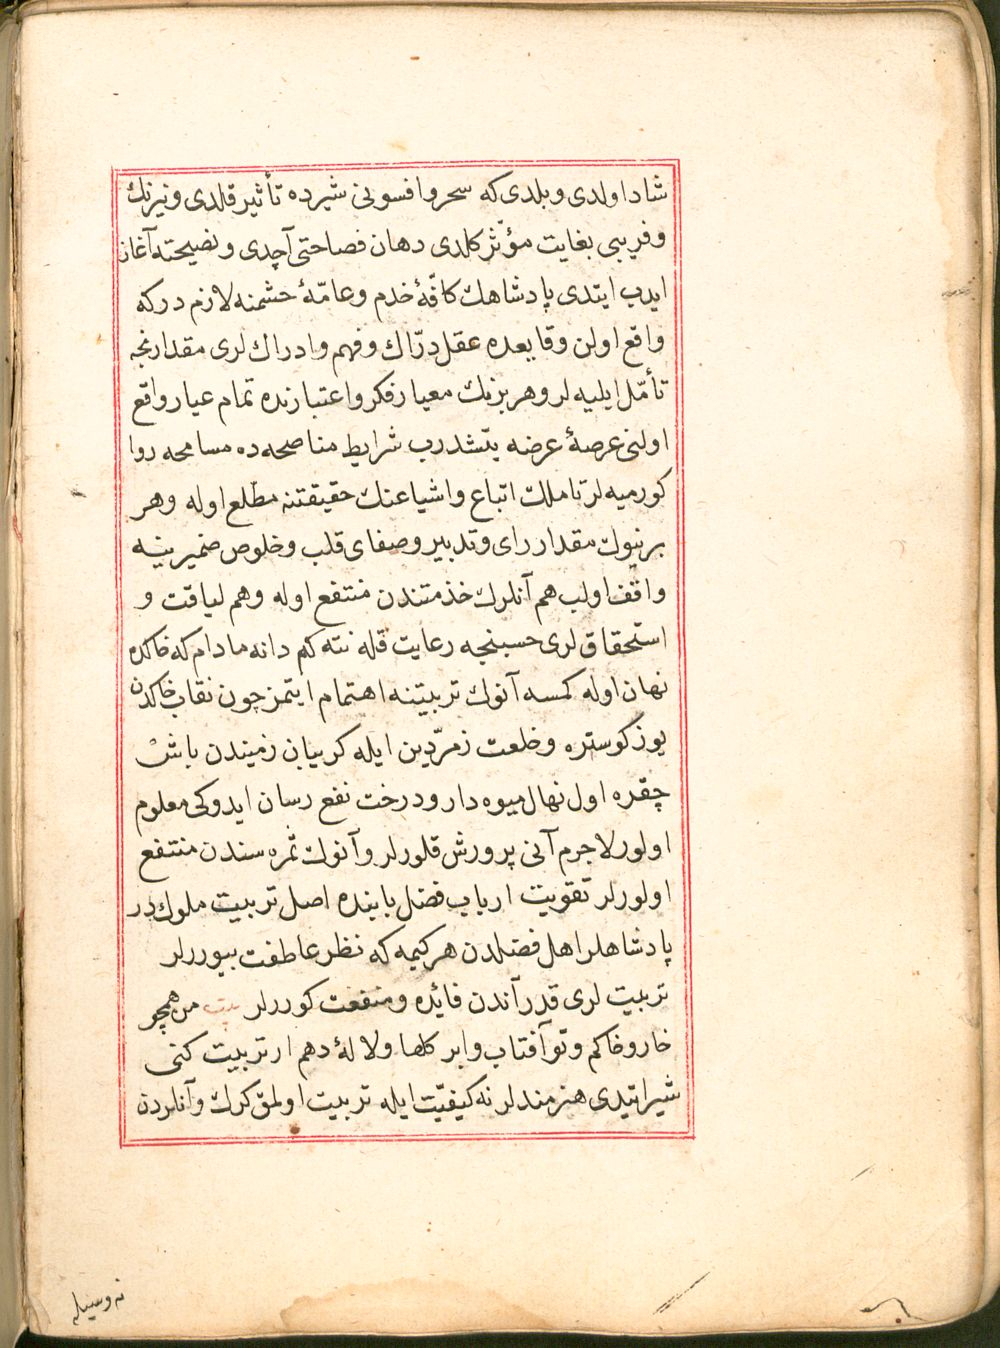 شاد اولدی و بلدی که سحر و افسونی شیرده تأثیر قلدی و نیرنك
و فریبی بغایت مؤثر کلدی دهان فصاحتی آچدی و نصیحته آغاز
ایدب ایتدی پادشاهك کافۀ خدم و عامّۀ حشمنه لازم در که
واقع اولن وقایعده عقل درّاك و فهم و ادراك لری مقدارنجه
تأمّل ایلیه لر و هر برینك معیار فکر و اعتبارنده تمام عیار واقع
اولنی عرصۀ عرضه یتشدرب شرایط مناصحه ده مسامحه روا
کورمیه لر تا ملك اتباع و اشیاعنك حقیقتنه مطلع اوله و هر
برینوك مقدار رای و تدبیر و صفای قلب و خلوص ضمیرینه
واقف اولب هم آنلرك خدمتندن منتفع اوله و هم لیاقت و
استحقاق لری حسبنجه رعایت قله نته کم دانه مادام که خاکده
نهان اوله کمسه آنوك تربیتنه اهتمام ایتمز چون نقاب خاکدن
یوز کوستره و خلعت زمرّدین ایله کریبان زمیندن باش
چقره اول نهال میوه دار و درخت نفع رسان ایدوکی معلوم
اولور لاجرم آنی پرورش قلورلر و آنوك ثمره سندن منتفع
اولورلر تقویت ارباب فضل بابنده اصل تربیت ملوك در
پادشاهلر اهل فضلدن هر کیمه که نظر عاطفت بیوررلر
تربیت لری قدر آندن فائده و منفعت کوررلر بیت من همچو
خار و خاکم و تو آفتاب و ابر کلها و لاله دهم ار تربیت کنی
شیر ایتدی هنرمندلر نه کیفیّت ایله تربیت اولمق کرك و آنلردن
نه وسیله